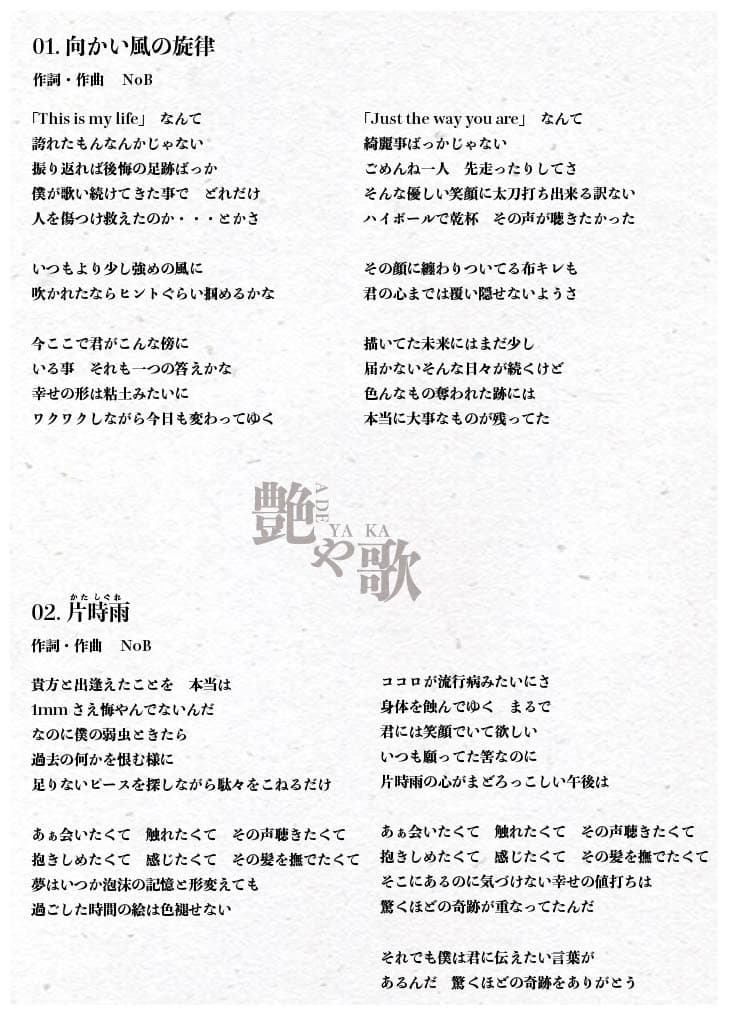 01. 向かい風の旋律
作詞・作曲　NoB
「This is my life」　なんて
誇れたもんなんかじゃない
振り返れば後悔の足跡ばっか
僕が歌い続けてきた事で　どれだけ
人を傷つけ救えたのか・・・とかさ
いつもより少し強めの風に
吹かれたならヒントぐらい掴めるかな
今ここで君がこんな傍に
いる事　それも一つの答えかな
幸せの形は粘土みたいに
ワクワクしながら今日も変わってゆく
「Just the way you are」　なんて
綺麗事ばっかじゃない
ごめんね一人　先走ったりしてさ
そんな優しい笑顔に太刀打ち出来る訳ない
ハイボールで乾杯　その声が聴きたかった
その顔に纏わりついてる布キレも
君の心までは覆い隠せないようさ
描いてた未来にはまだ少し
届かないそんな日々が続くけど
色んなもの奪われた跡には
本当に大事なものが残ってた
艶や歌
ADE YA KA
かた しぐれ
02. 片時雨
作詞・作曲　NoB
貴方と出逢えたことを　本当は
1mm さえ悔やんでないんだ
なのに僕の弱虫ときたら
過去の何かを恨む様に
足りないピースを探しながら駄々をこねるだけ
あぁ会いたくて　触れたくて　その声聴きたくて
抱きしめたくて　感じたくて　その髪を撫でたくて
夢はいつか泡沫の記憶と形変えても
過ごした時間の絵は色褪せない
ココロが流行病みたいにさ
身体を蝕んでゆく　まるで
君には笑顔でいて欲しい
いつも願ってた筈なのに
片時雨の心がまどろっこしい午後は
あぁ会いたくて　触れたくて　その声聴きたくて
抱きしめたくて　感じたくて　その髪を撫でたくて
そこにあるのに気づけない幸せの値打ちは
驚くほどの奇跡が重なってたんだ
それでも僕は君に伝えたい言葉が
あるんだ　驚くほどの奇跡をありがとう